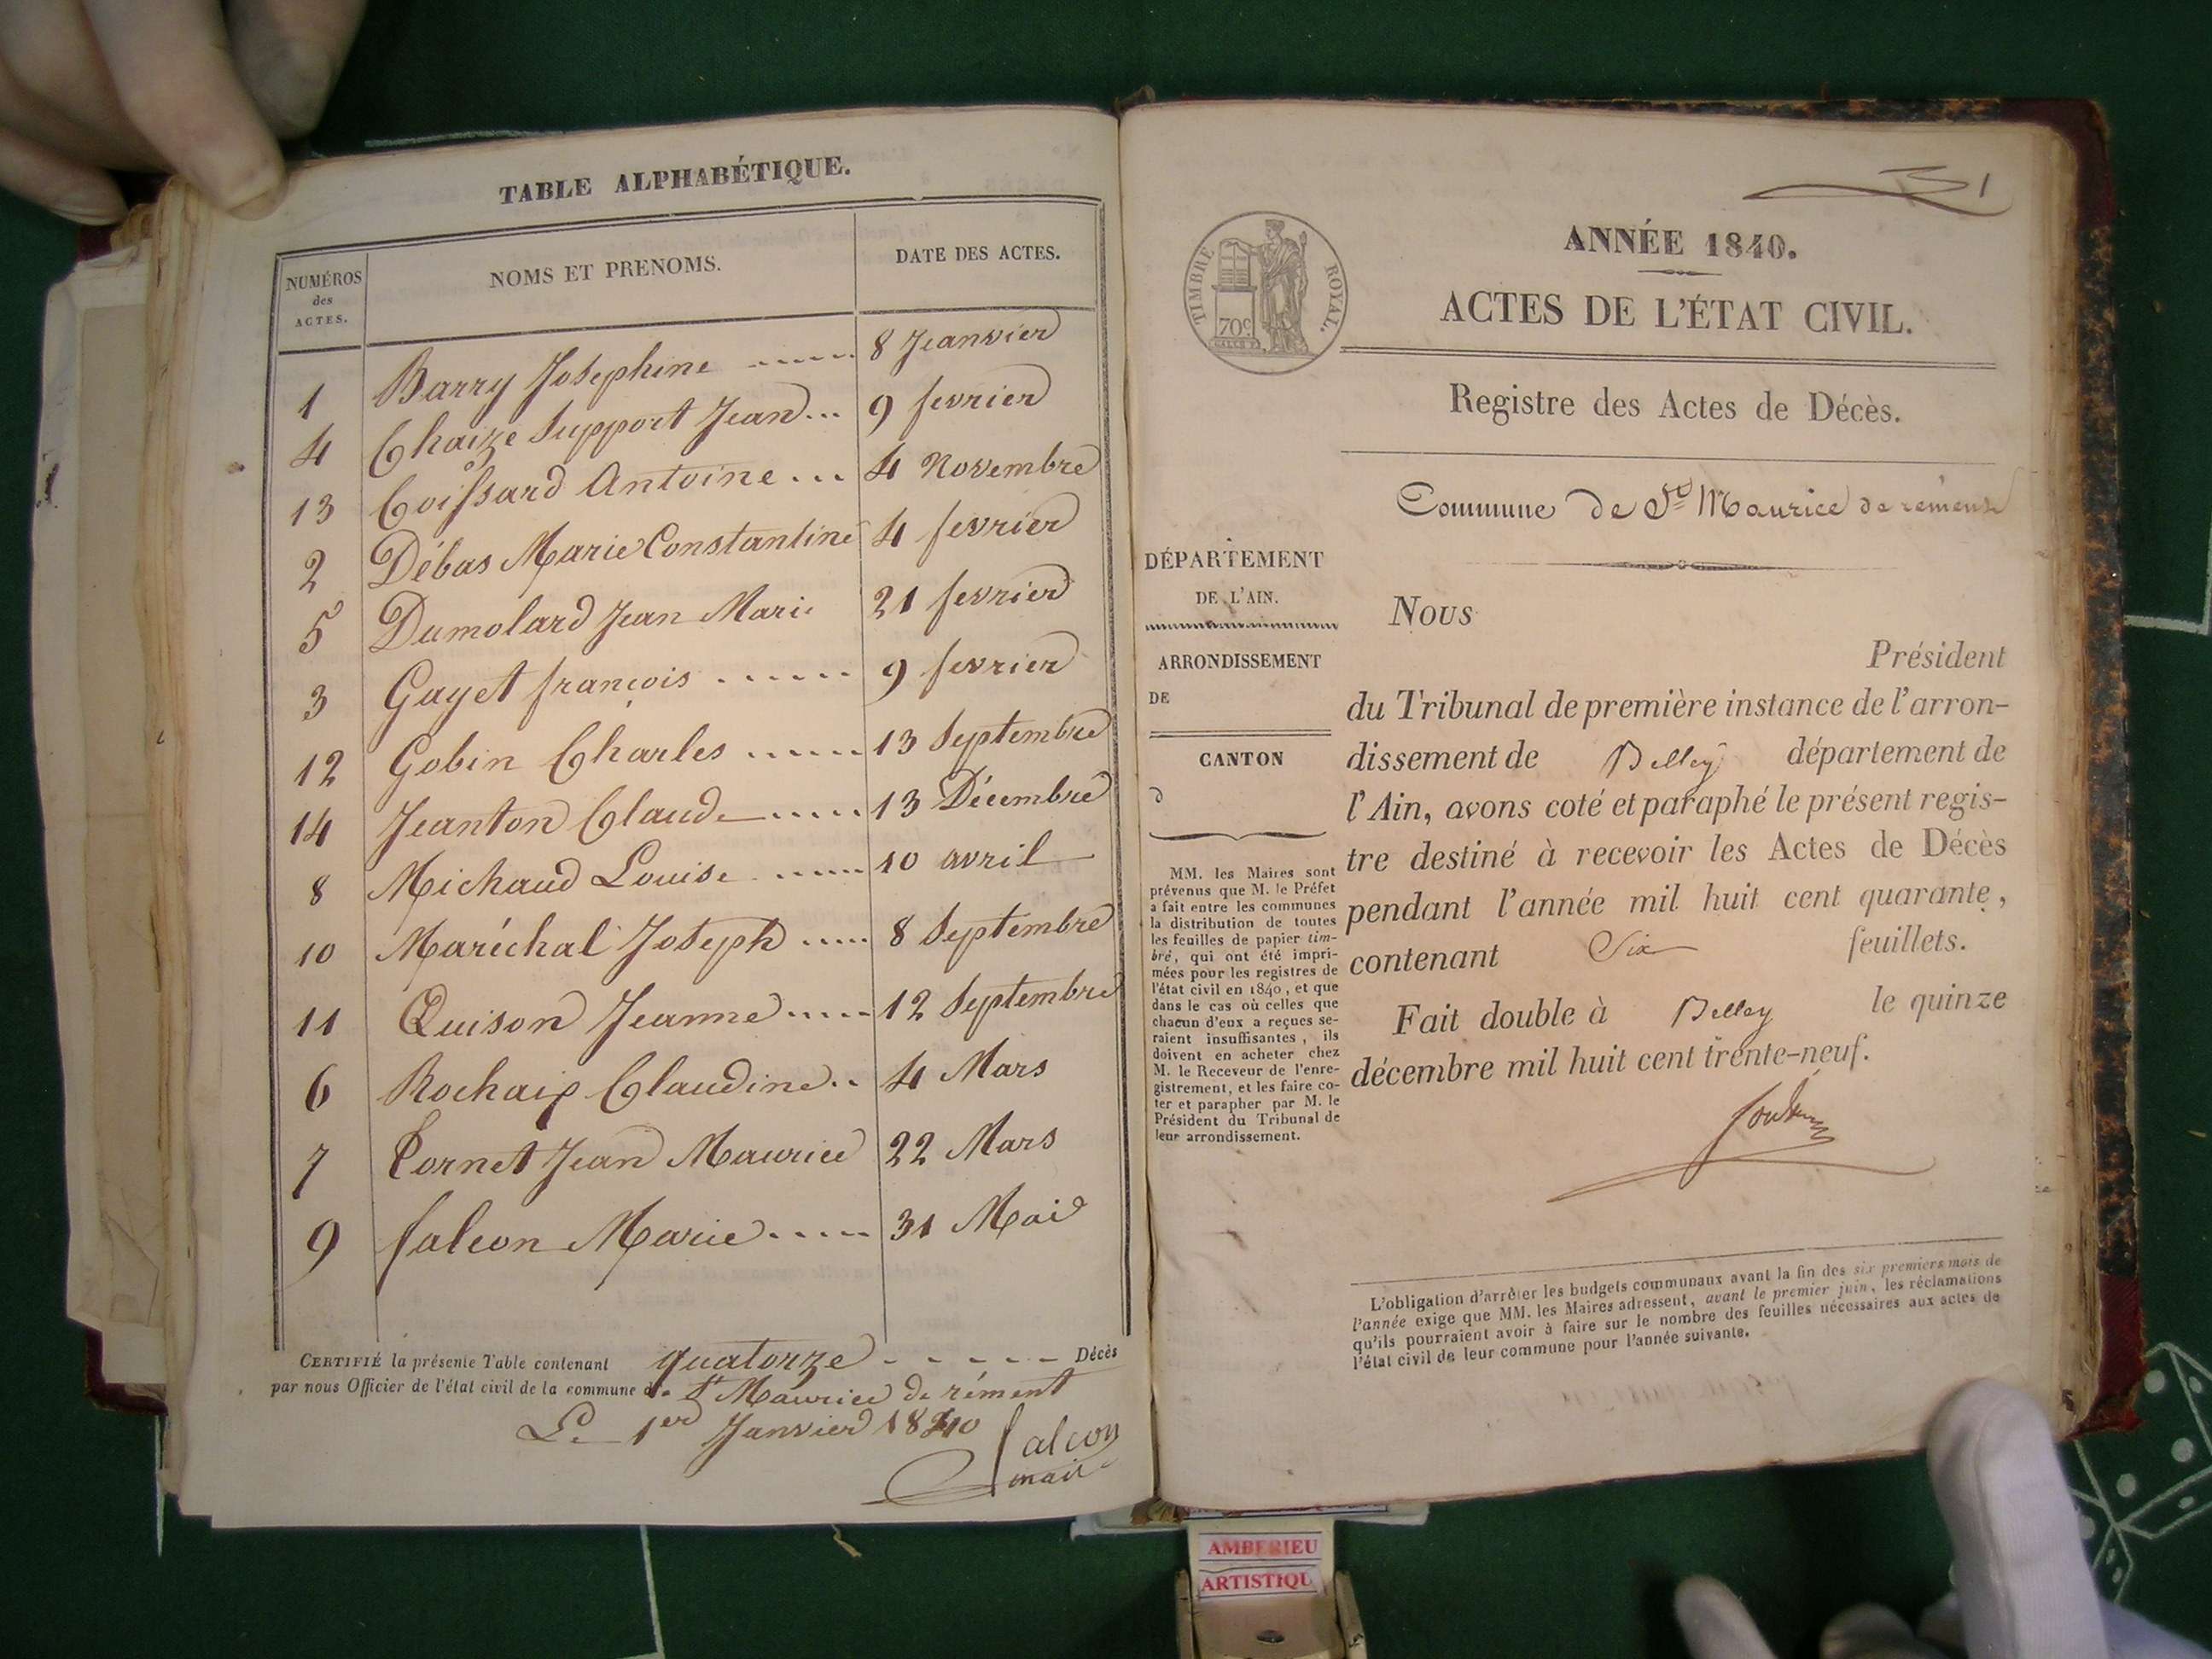 TABLE ALPHABÉTIQUE.
NUMÉROS
des
ACTES.
NOMS ET PRENOMS.
DATE DES ACTES.
1 Barry Josephine ------ 8 Jeanvier
4 Chaize Support Jean... 9 fevrier
13 Coissard Antoine ... 4 Novembre
2 Débas Marie Constantine 4 fevrier
5 Dumolard Jean Marie 21 fevrier
3 Gayet françois ...... 9 fevrier
12 Gobin Charles ...... 13 Septembre
14 Jeanton Claude ..... 13 Décembre
8 Michaud Louise ...... 10 avril
10 Maréchal Joseph ..... 8 Septembre
11 Quison Jeanne ..... 12 Septembre
6 Rochaix Claudine.. 4 Mars
7 Cornet Jean Maurice 22 Mars
9 falcon Marie ..... 31 Mai
CERTIFIÉ la présente Table contenant quatorze - - - - - - Décès
par nous Officier de l'état civil de la commune de St Maurice de rément
Le 1er Janvier 1840
falcon
maire
1
TIMBRE ROYAL.
70c.
ANNÉE 1840.
ACTES DE L'ÉTAT CIVIL.
Registre des Actes de Décès.
Commune de St Maurice de
DÉPARTEMENT
DE L'AIN.
ARRONDISSEMENT
DE
CANTON
d
MM. les Maires sont
prévenus que M. le Préfet
a fait entre les communes
la distribution de toutes
les feuilles de papier tim-
bré, qui ont été impri-
mées pour les registres de
l'état civil en 1840, et que
dans le cas où celles que
chacun d'eux a reçues se-
raient insuffisantes, ils
doivent en acheter chez
M. le Receveur de l'enre-
gistrement, et les faire co-
ter et parapher par M. le
Président du Tribunal de
leur arrondissement.
Nous
Président
du Tribunal de première instance de l'arron-
dissement de Belley département de
l'Ain, avons coté et paraphé le présent regis-
tre destiné à recevoir les Actes de Décès
pendant l'année mil huit cent quarante,
contenant Six feuillets.
Fait double à Belley le quinze
décembre mil huit cent trente-neuf.
L'obligation d'arrêter les budgets communaux avant la fin des six premiers mois de
l'année exige que MM. les Maires adressent, avant le premier juin, les réclamations
qu'ils pourraient avoir à faire sur le nombre des feuilles nécessaires aux actes de
l'état civil de leur commune pour l'année suivante.
AMBERIEU
ARTISTIQU